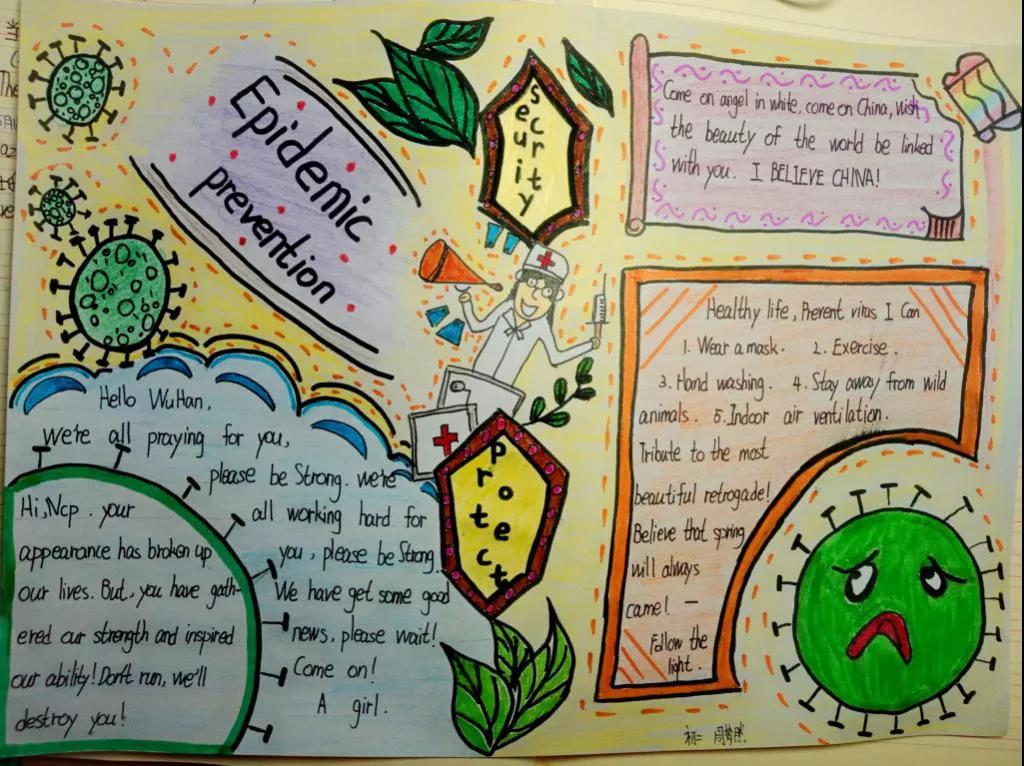 Epidemic
prevention
security
Come on angel in white, come on China, wish
the beauty of the world be linked
with you. I BELIEVE CHINA!
Healthy life, Prevent virus I Can
1. Wear a mask. 2. Exercise.
3. Hand washing. 4. Stay away from wild
animals. 5. Indoor air ventilation.
Tribute to the most
beautiful retrogade!
Believe that spring
will always
came! —
Follow the
light.
protect
Hello WuHan,
we're all praying for you,
please be Strong. we're
all working hard for
you, please be Strong.
We have get some good
news, please wait!
Come on!
A girl.
Hi, Ncp. your
appearance has broken up
our lives. But, you have gath-
ered our strength and inspired
our ability! Don't run, we'll
destroy you!
初二